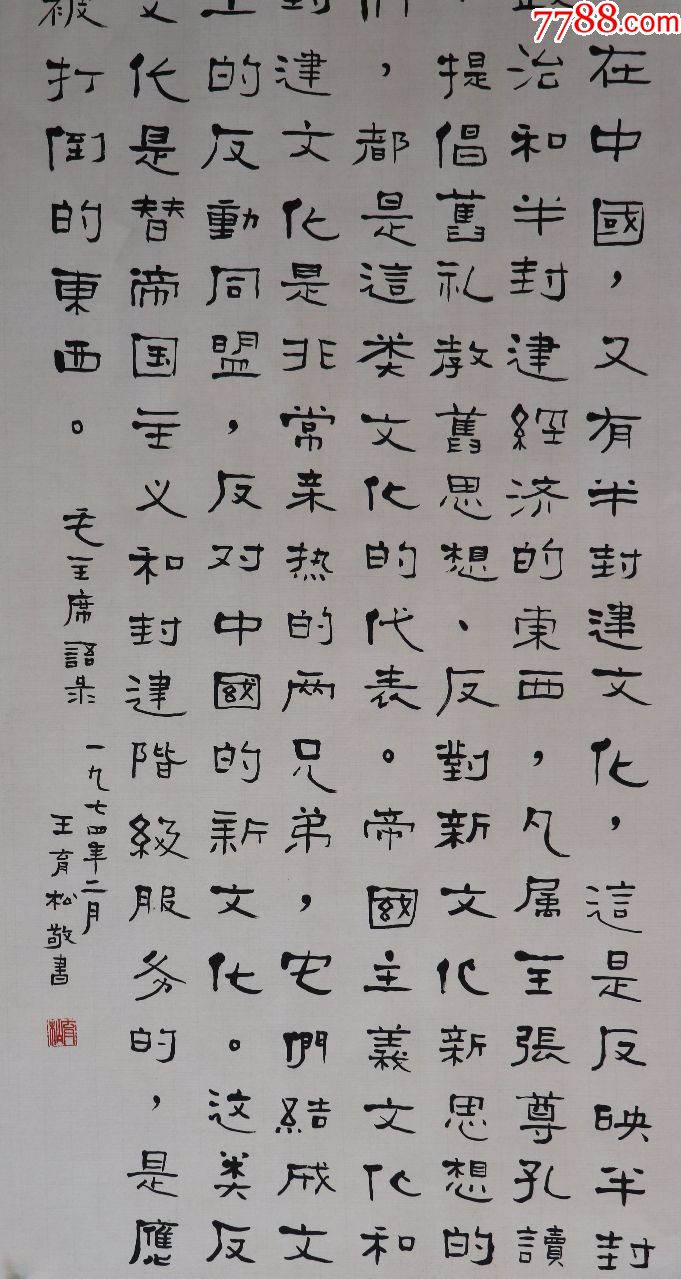 7788.com
在中國，又有半封建文化，這是反映半封
政治和半封建經济的東西，凡属主張尊孔讀
、提倡舊礼教舊思想、反對新文化新思想的
們，都是這类文化的代表。帝國主義文化和
封建文化是非常亲热的两兄弟，它們結成文
上的反動同盟，反对中國的新文化。这类反
文化是替帝国主义和封建階級服务的，是應
被打倒的東西。毛主席語彔
一九七四年二月
王育松敬書